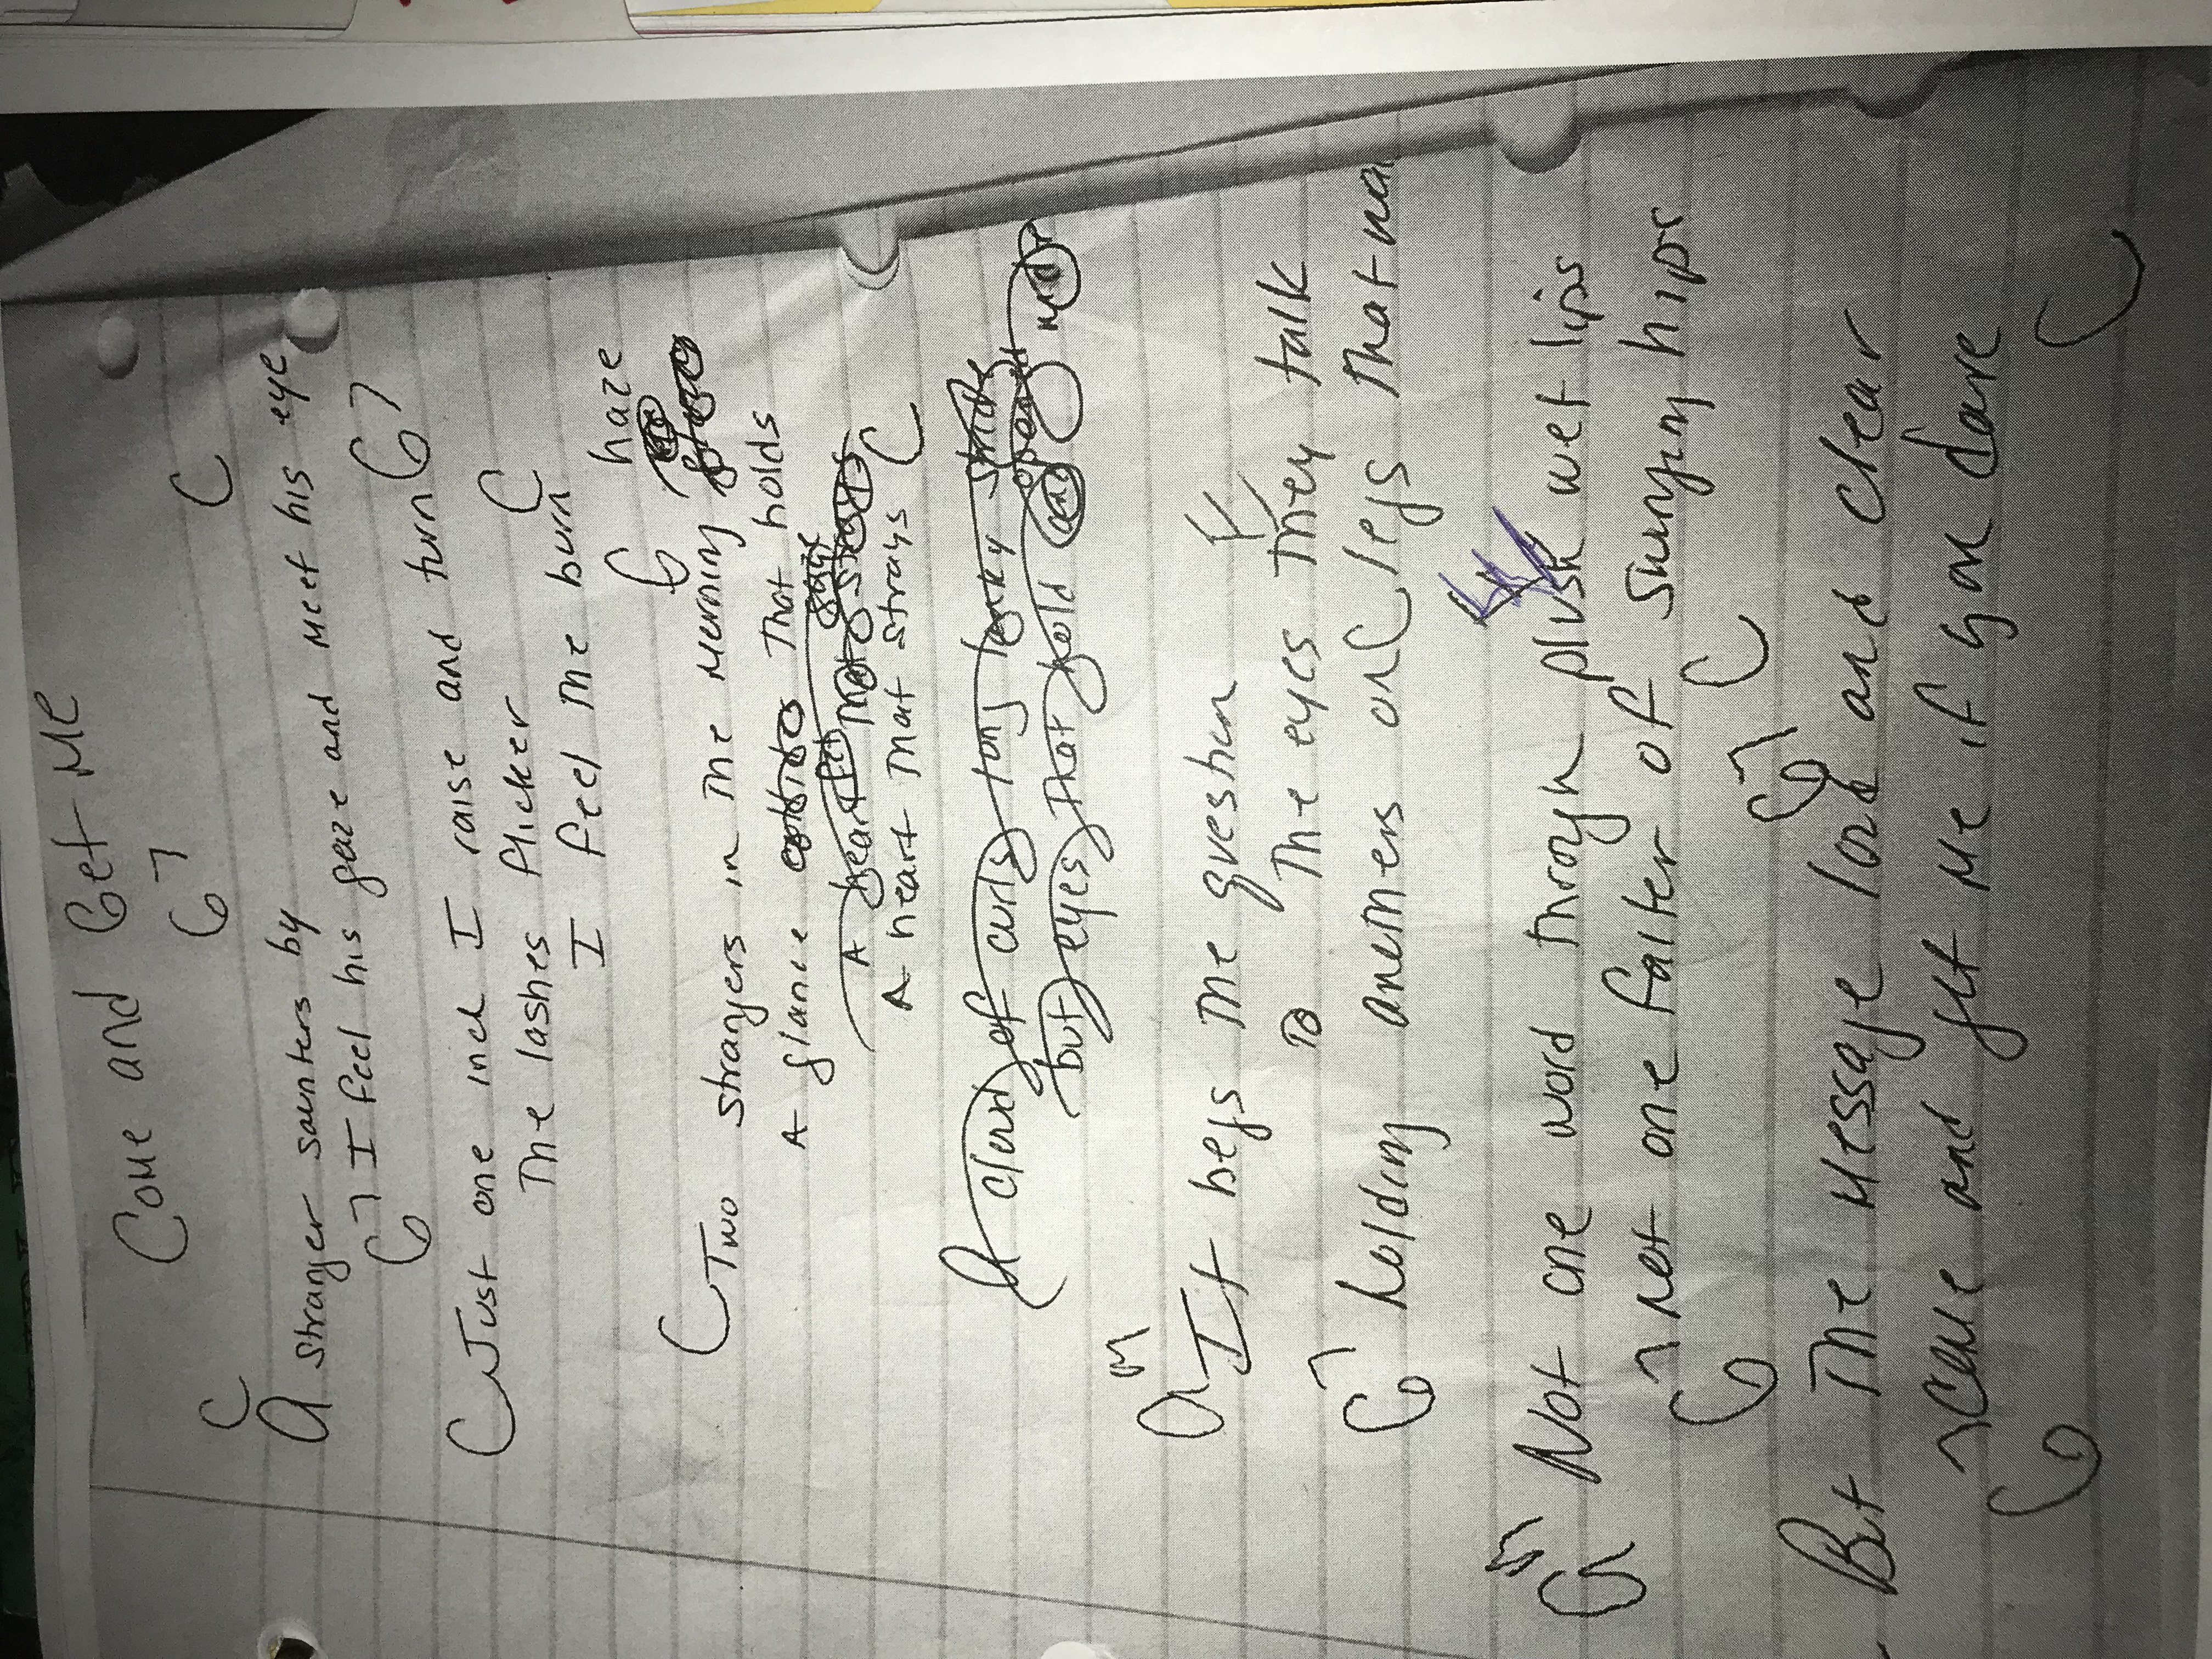 Come and Get Me
C G7 C
A stranger saunters by
I feel his gaze and meet his eye
G7 G7
Just one inch I raise and turn
C The lashes flicker C
I feel the burn
G haze
C Two strangers in the morning
A glance that holds
A heart that strays
A heart that strays C
A cloud of curls long lanky
but eyes that hold and
Am F
It begs the question
To The eyes they talk
G7 holding anothers on C legs that
Am Not one word through plush wet lips
G7 Not one falter of swaying hips C
G7
But the message loud and clear
G7 come and get me if you dare C